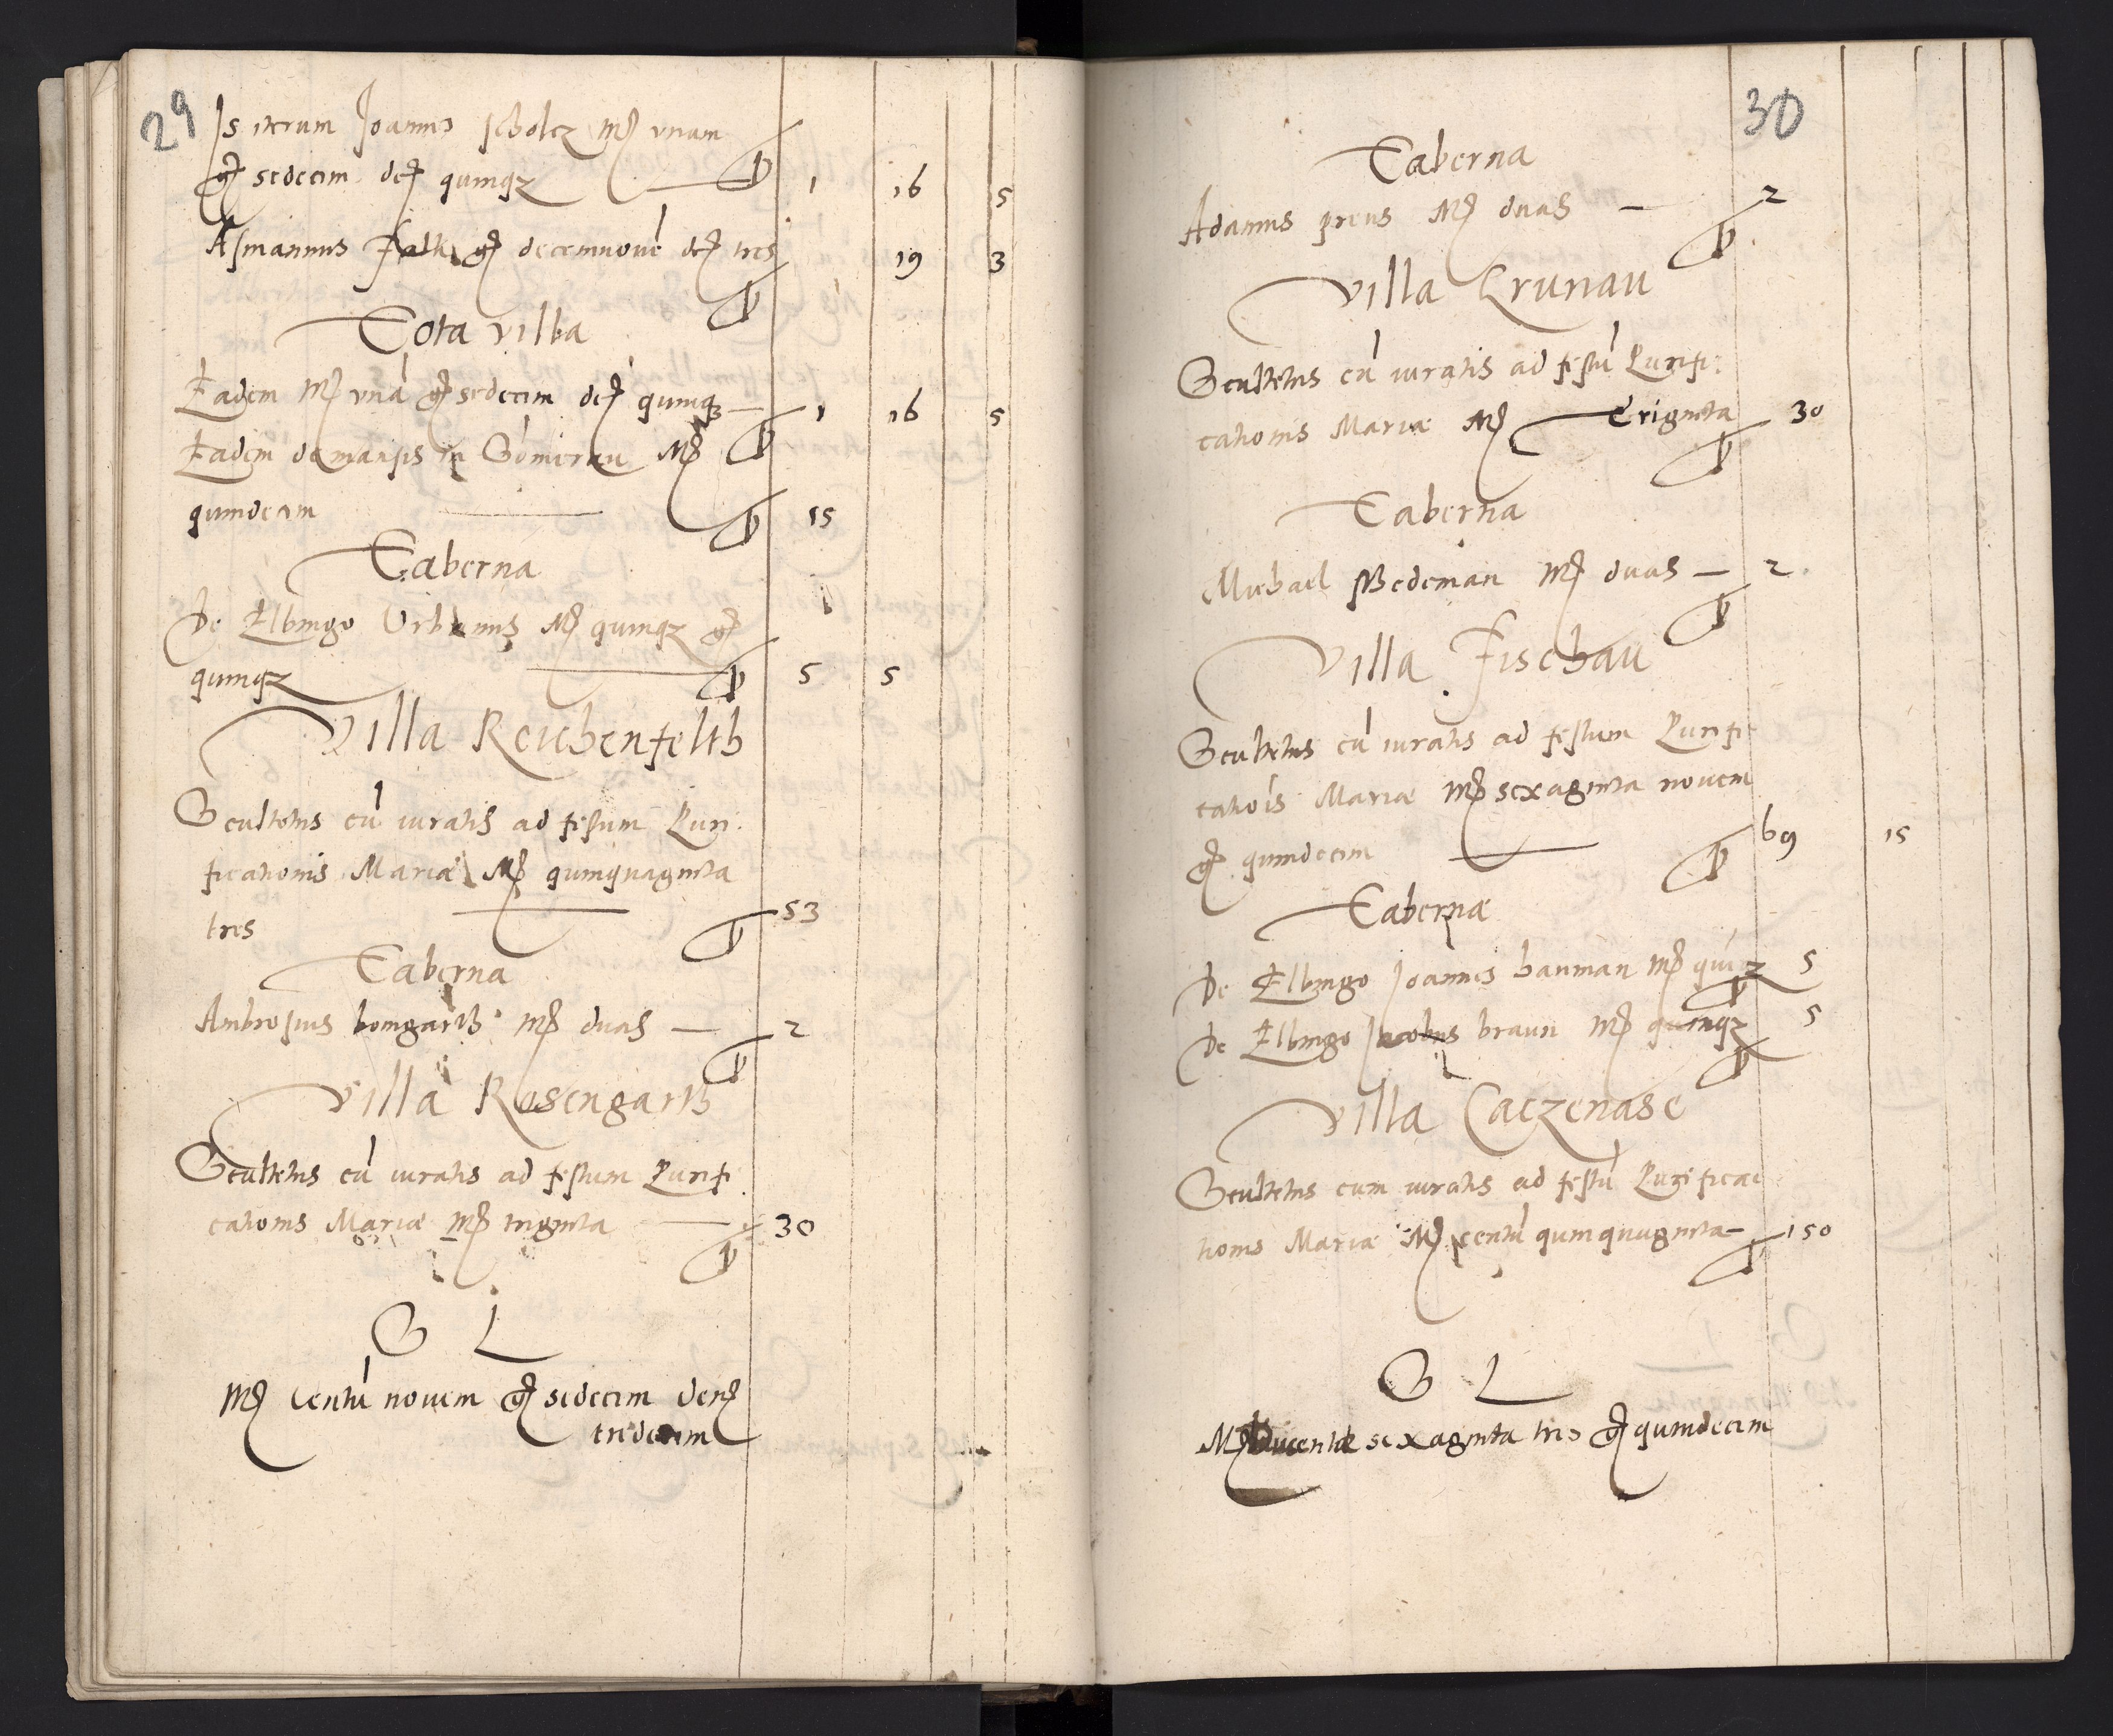 29
Is iterum Joannes scholcz mr̄ vnam
gr̄ sedecim den̄ quinqz 1 16 5
Asmannus Falk gr̄ decemnouē den̄ tres 19 3
Tota villa
Eadem mr̄ vnā gr̄ sedecim den̄ quinqz 1 16 5
Eadem de mansis in Somerau Mr̄
quindecim 15
Taberna
De Elbingo Urbanus Mr̄ quinqz gr̄
quinqz 5 5
Villa Reichenfelth
Scultetus cū iuratis ad festum Puri-
ficationis Mariæ Mr̄ quinquaginta
tres 53
Taberna
Ambrosius bomgarth mr̄ duas 2
Villa Rosengarth
Scultetus cū iuratis ad festum Purifi
cationis Mariæ Mr̄ triginta 30
S L
Mr̄ Centū nouem gr̄ sedecim den̄
tredecim
30
Taberna
Adamus preus Mr̄ duas 2
Villa Grunau
Scultetus cū iuratis ad festū Purifi:
cationis Mariæ Mr̄ Triginta 30
Taberna
Michael Wedeman Mr̄ duas 2
Villa Fischau
Scultetus cū iuratis ad festum Purifi
catiois Mariæ Mr̄ sexaginta nouem
gr̄ quindecim 69 15
Tabernæ
De Elbingo Joannes banman mr̄ quiqz 5
De Elbingo Jacobus braun Mr̄ quinqz 5
Villa Caczenase
Scultetus cum iuratis ad festū Purificac
tionis Mariæ Mr̄ centū quinquaginta 150
S L
Mr̄ Ducentæ sexaginta tres gr̄ quindecim